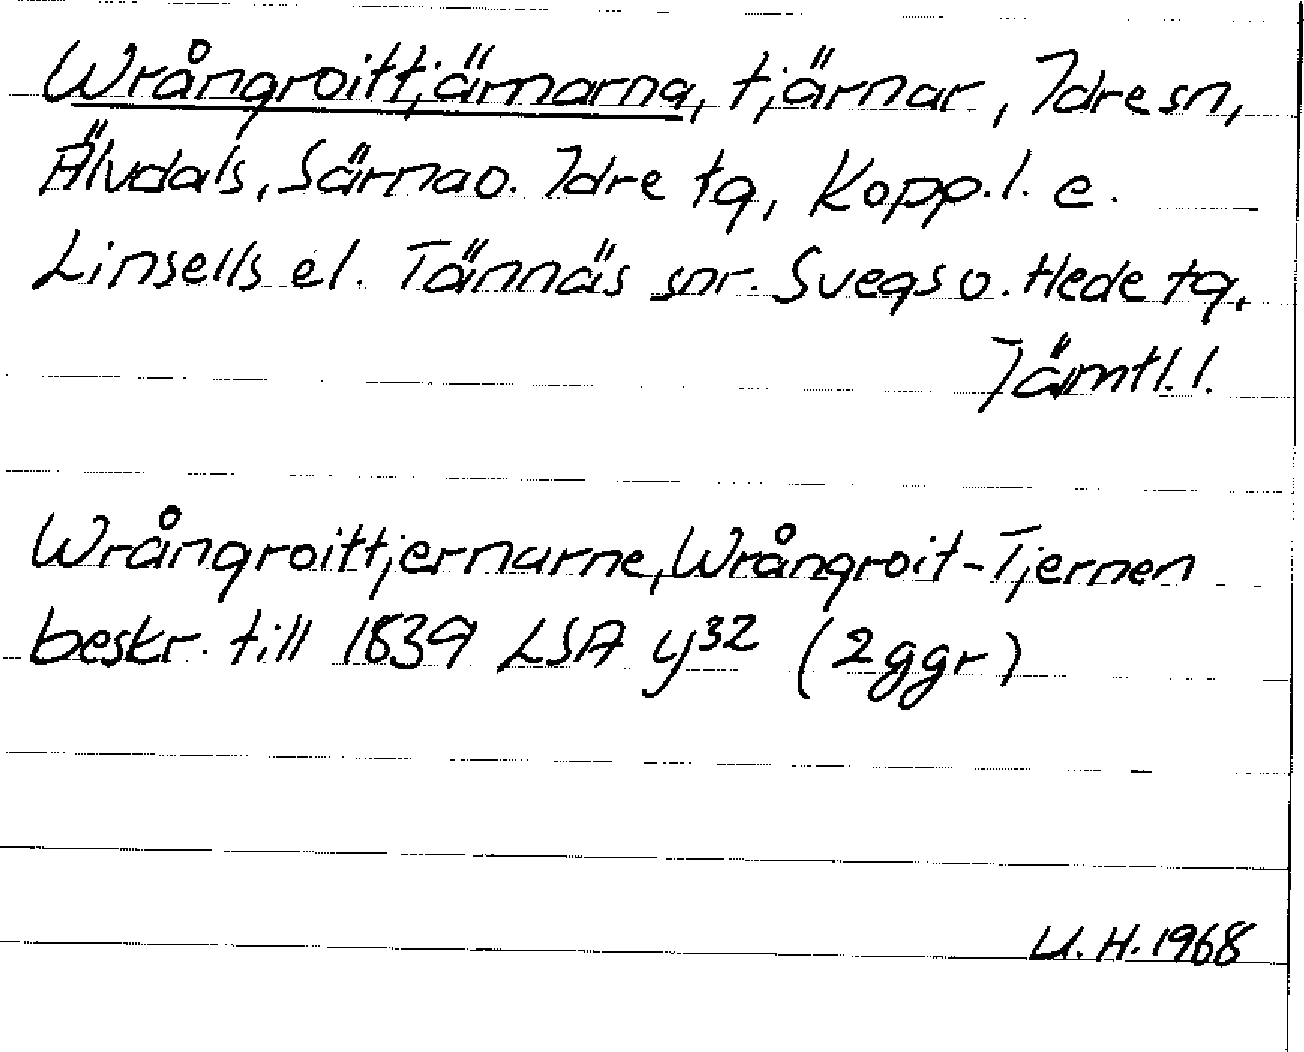 Wrångroittjärnarna, tjärnar, Idre sn,
Älvdals, Särna o. Idre tg, Kopp. l. e.
Linsells el. Tännäs snr. Svegs o. Hede tg.
Jämtl. l.
Wrångroittjernarne, Wrångroit-Tjernen
beskr. till 1839 LSA y32 (2 ggr)
U. H. 1968